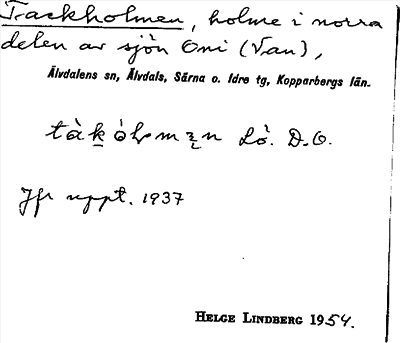 Trackholmen, holme i norra
delen av sjön Oni (Van),
Älvdalens sn, Älvdals, Särna o. Idre tg, Kopparbergs län.
Lò. D.O.
Jfr uppt. 1937
HELGE LINDBERG 1954.